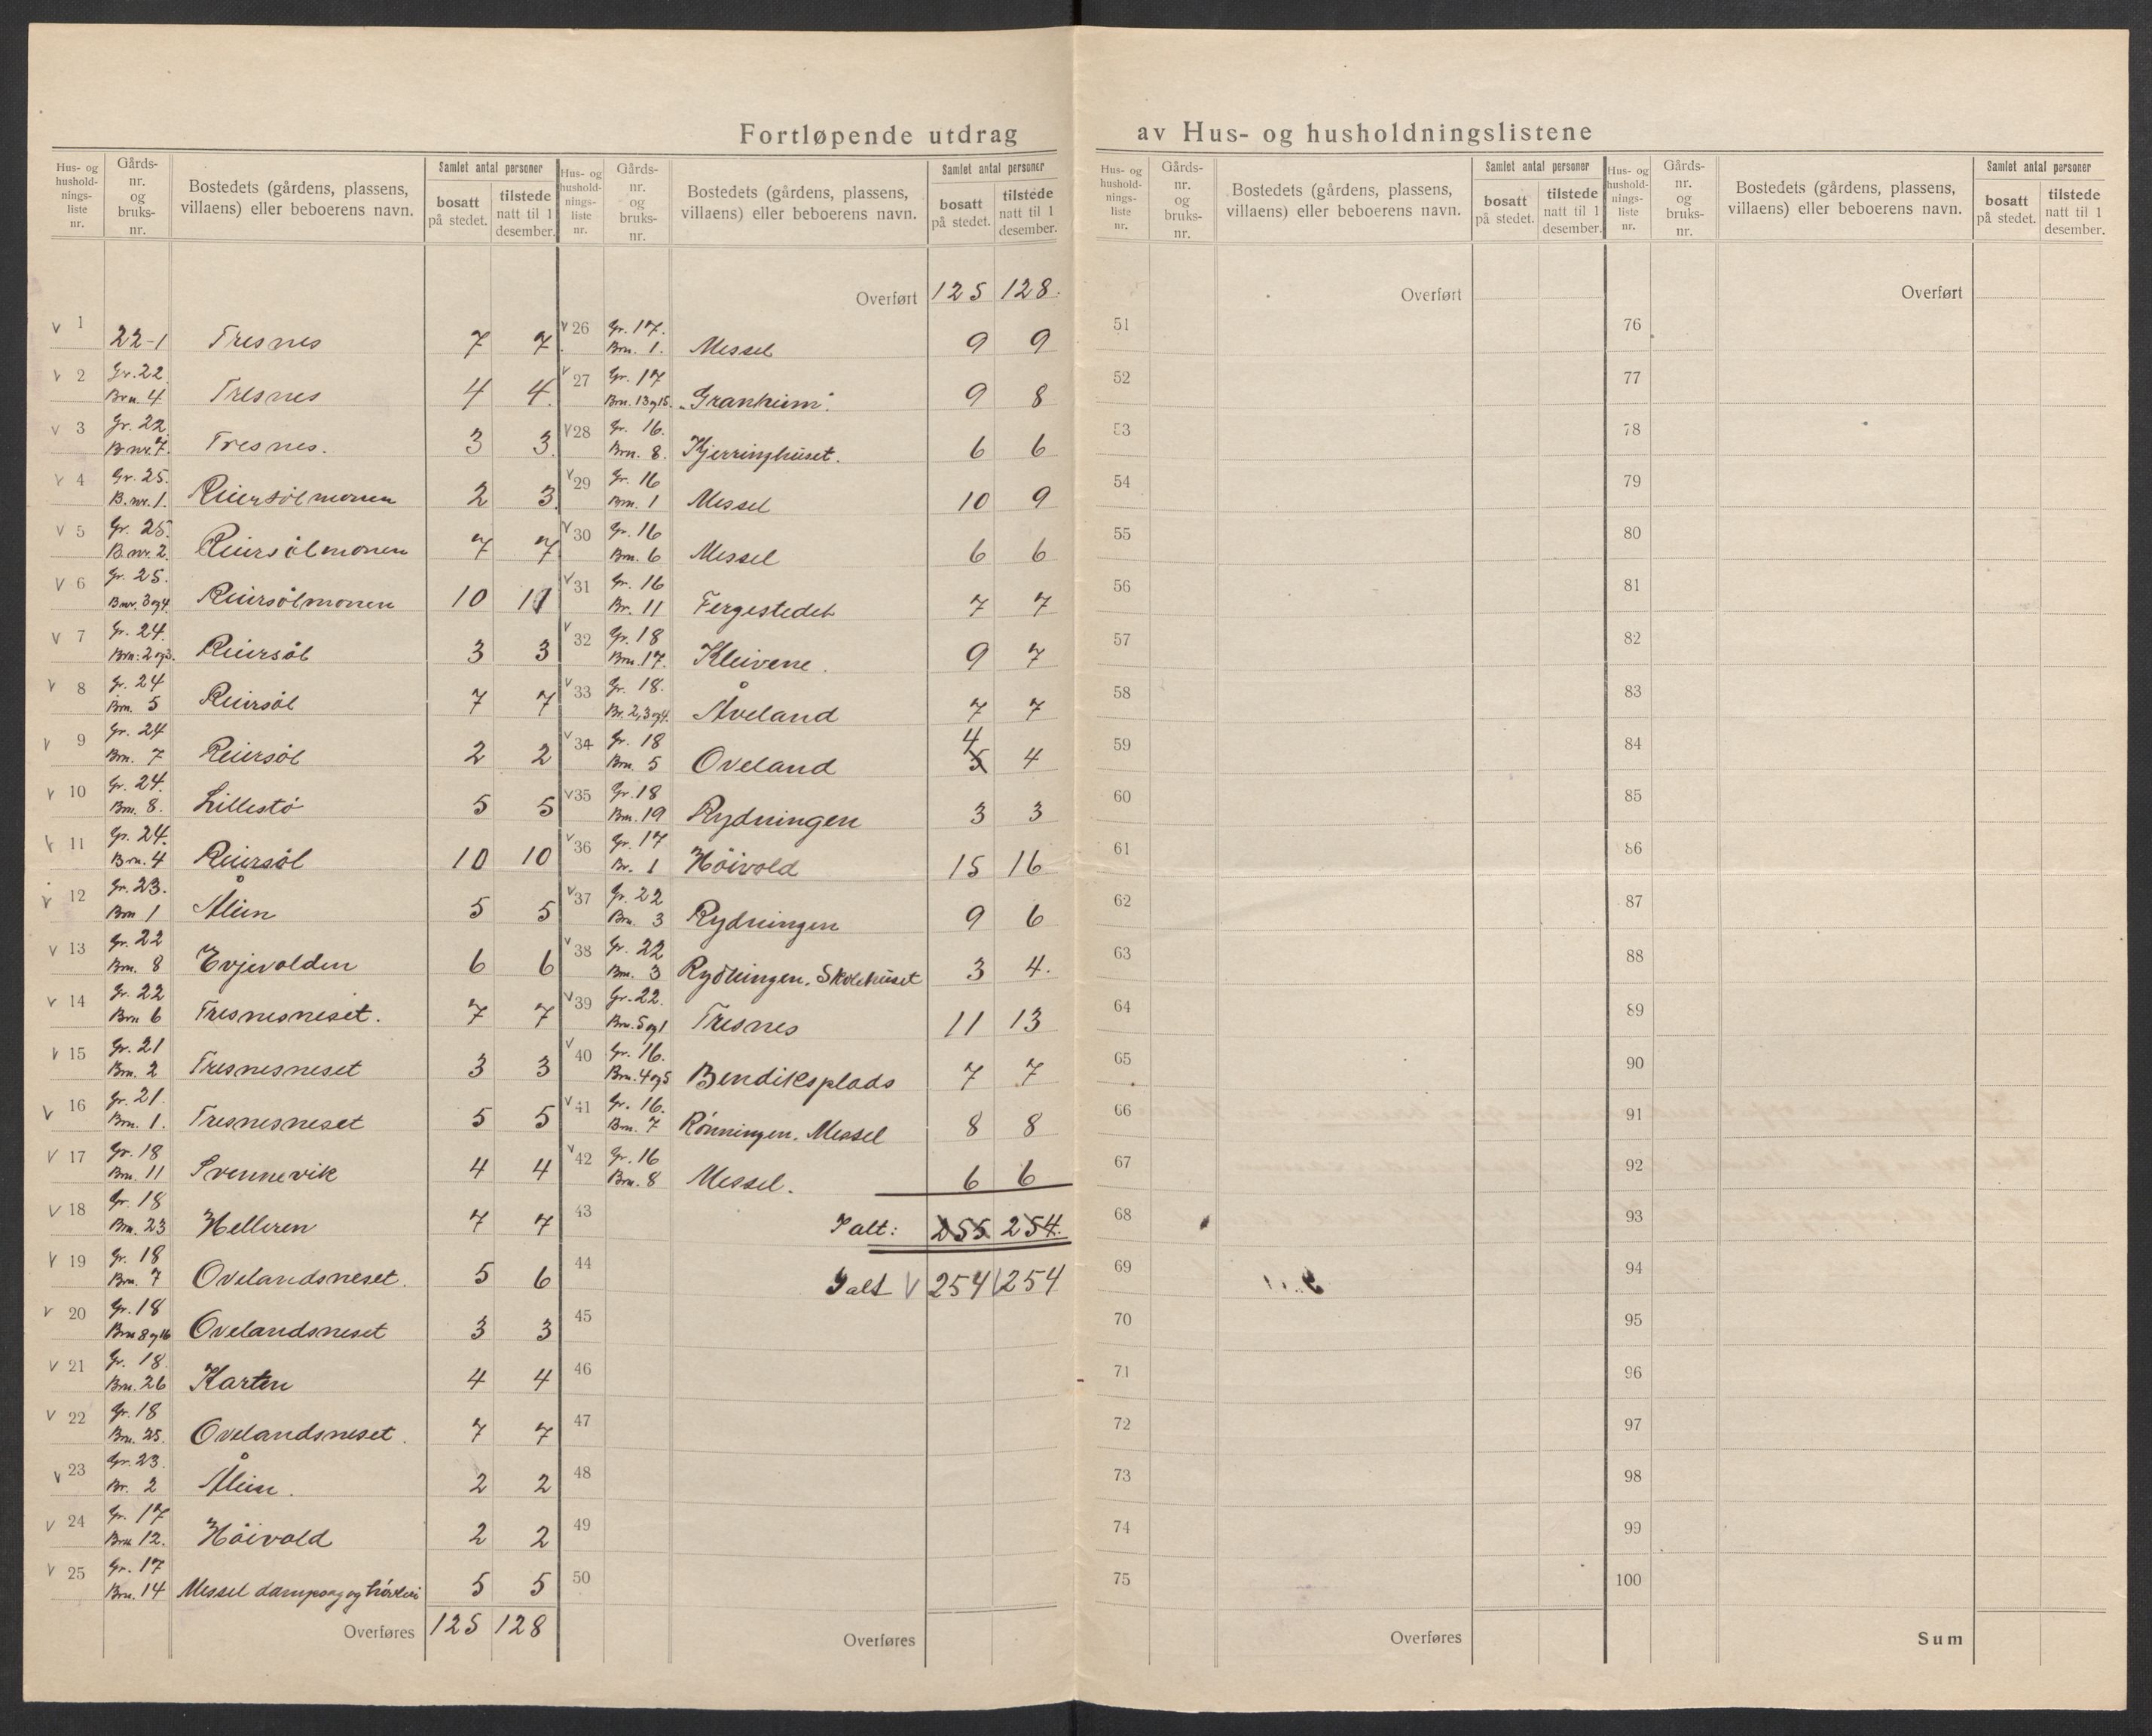 Fortløpende utdrag av Hus- og husholdningslistene
Hus- og husholdnings-liste nr. | Gårds-nr. og bruks-nr. | Bostedets (gårdens, plassens, villaens) eller beboerens navn. | Samlet antal personer | bosatt på stedet. | tilstede natt til 1 desember.
v 1 22-1 Tresnes 7 7
v 2 Gr. 22 Brn. 4 Tresnes 4 4.
v 3 Gr. 22 B.nr. 7. Tresnes. 3 3
v 4 Gr. 25. B.nr. 1. Reiersölmonen 2 3
v 5 Gr. 25. B.nr. 2. Reiersölmonen 7 7
v 6 Gr. 25. Bnr. 3 og 4. Reiersölmonen 10 11
v 7 Gr. 24. Brn. 2 og 3. Reiersöl 3 3
v 8 Gr. 24 Brn. 5 Reiersöl 7 7
v 9 Gr. 24 Brn. 7 Reiersöl 2 2
v 10 Gr. 24. Brn. 8. Lillestö 5 5
v 11 Gr. 24. Brn. 4 Reiersöl 10 10
v 12 Gr. 23. Brn 1 Åleen 5 5
v 13 Gr. 22 Brn. 8 Evjevolden 6 6
v 14 Gr. 22 Brn 6 Tresnesneset. 7 7
v 15 Gr. 21 Brn. 2 Tresnesneset 3 3
v 16 Gr. 21. Brn. 1. Tresnesneset 5 5
v 17 Gr. 18 Brn. 11 Svennevik 4 4
v 18 Gr. 18 Brn. 23 Helleren 7 7
v 19 Gr. 18 Brn. 7 Ovelandsneset. 5 6
v 20 Gr. 18 Brn 8 og 16 Ovelandsneset 3 3
v 21 Gr. 18. Brn. 26 Karten 4 4
v 22 Gr. 18 Brn. 25. Ovelandsneset. 7 7
v 23 Gr. 23. Br. 2 Åleen. 2 2
v 24 Gr. 17 Brn 12. Höivold 2 2
v 25 Gr. 17 Brn. 14 Messel dampsag og hövleri 5 5
Overføres 125 128
Hus- og husholdnings-liste nr. | Gårds-nr. og bruks-nr. | Bostedets (gårdens, plassens, villaens) eller beboerens navn. | Samlet antal personer | bosatt på stedet. | tilstede natt til 1 desember.
Overført 125 128.
v 26 Gr. 17. Brn. 1. Messel 9 9
v 27 Gr. 17 Brn. 13 og 15. „Granheim". 9 8
v 28 Gr. 16. Brn. 8. Kjerringhuset. 6 6
v 29 Gr. 16 Brn. 1 Messel 10 9
v 30 Gr. 16 Brn. 6 Messel 6 6
v 31 Gr. 16 Br. 11 Fergestedet 7 7
v 32 Gr. 18 Brn. 17. Kleivene. 9 7
v 33 Gr. 18. Br. 2, 3 og 4. Åveland 7 7
v 34 Gr. 18 Brn. 5 Oveland 5 4 4
v 35 Gr. 18 Brn. 19 Rydningen 3 3
v 36 Gr. 17 Br. 1 Höivold 15 16
v 37 Gr. 22 Brn. 3 Rydningen 9 6
v 38 Gr. 22 Brn. 3 Rydningen. Skolehuset 3 4.
v 39 Gr. 22. Brn. 5 og 1 Tresnes 11 13
v 40 Gr. 16. Brn. 4 og 5 Bendiksplads 7 7
v 41 Gr. 16. Brn. 7 Rönningen. Messel 8 8
v 42 Gr. 16 Brn. 8 Messel. 6 6
43 I alt: 255 254.
44 I alt v 254 v 254
45
46
47
48
49
50
Overføres
Hus- og husholdnings-liste nr. | Gårds-nr. og bruks-nr. | Bostedets (gårdens, plassens, villaens) eller beboerens navn. | Samlet antal personer | bosatt på stedet. | tilstede natt til 1 desember.
Overført
51
52
53
54
55
56
57
58
59
60
61
62
63
64
65
66
67
68
69
70
71
72
73
74
75
Overføres
Hus- og husholdnings-liste nr. | Gårds-nr. og bruks-nr. | Bostedets (gårdens, plassens, villaens) eller beboerens navn. | Samlet antal personer | bosatt på stedet. | tilstede natt til 1 desember.
Overført
76
77
78
79
80
81
82
83
84
85
86
87
88
89
90
91
92
93
94
95
96
97
98
99
100
Sum